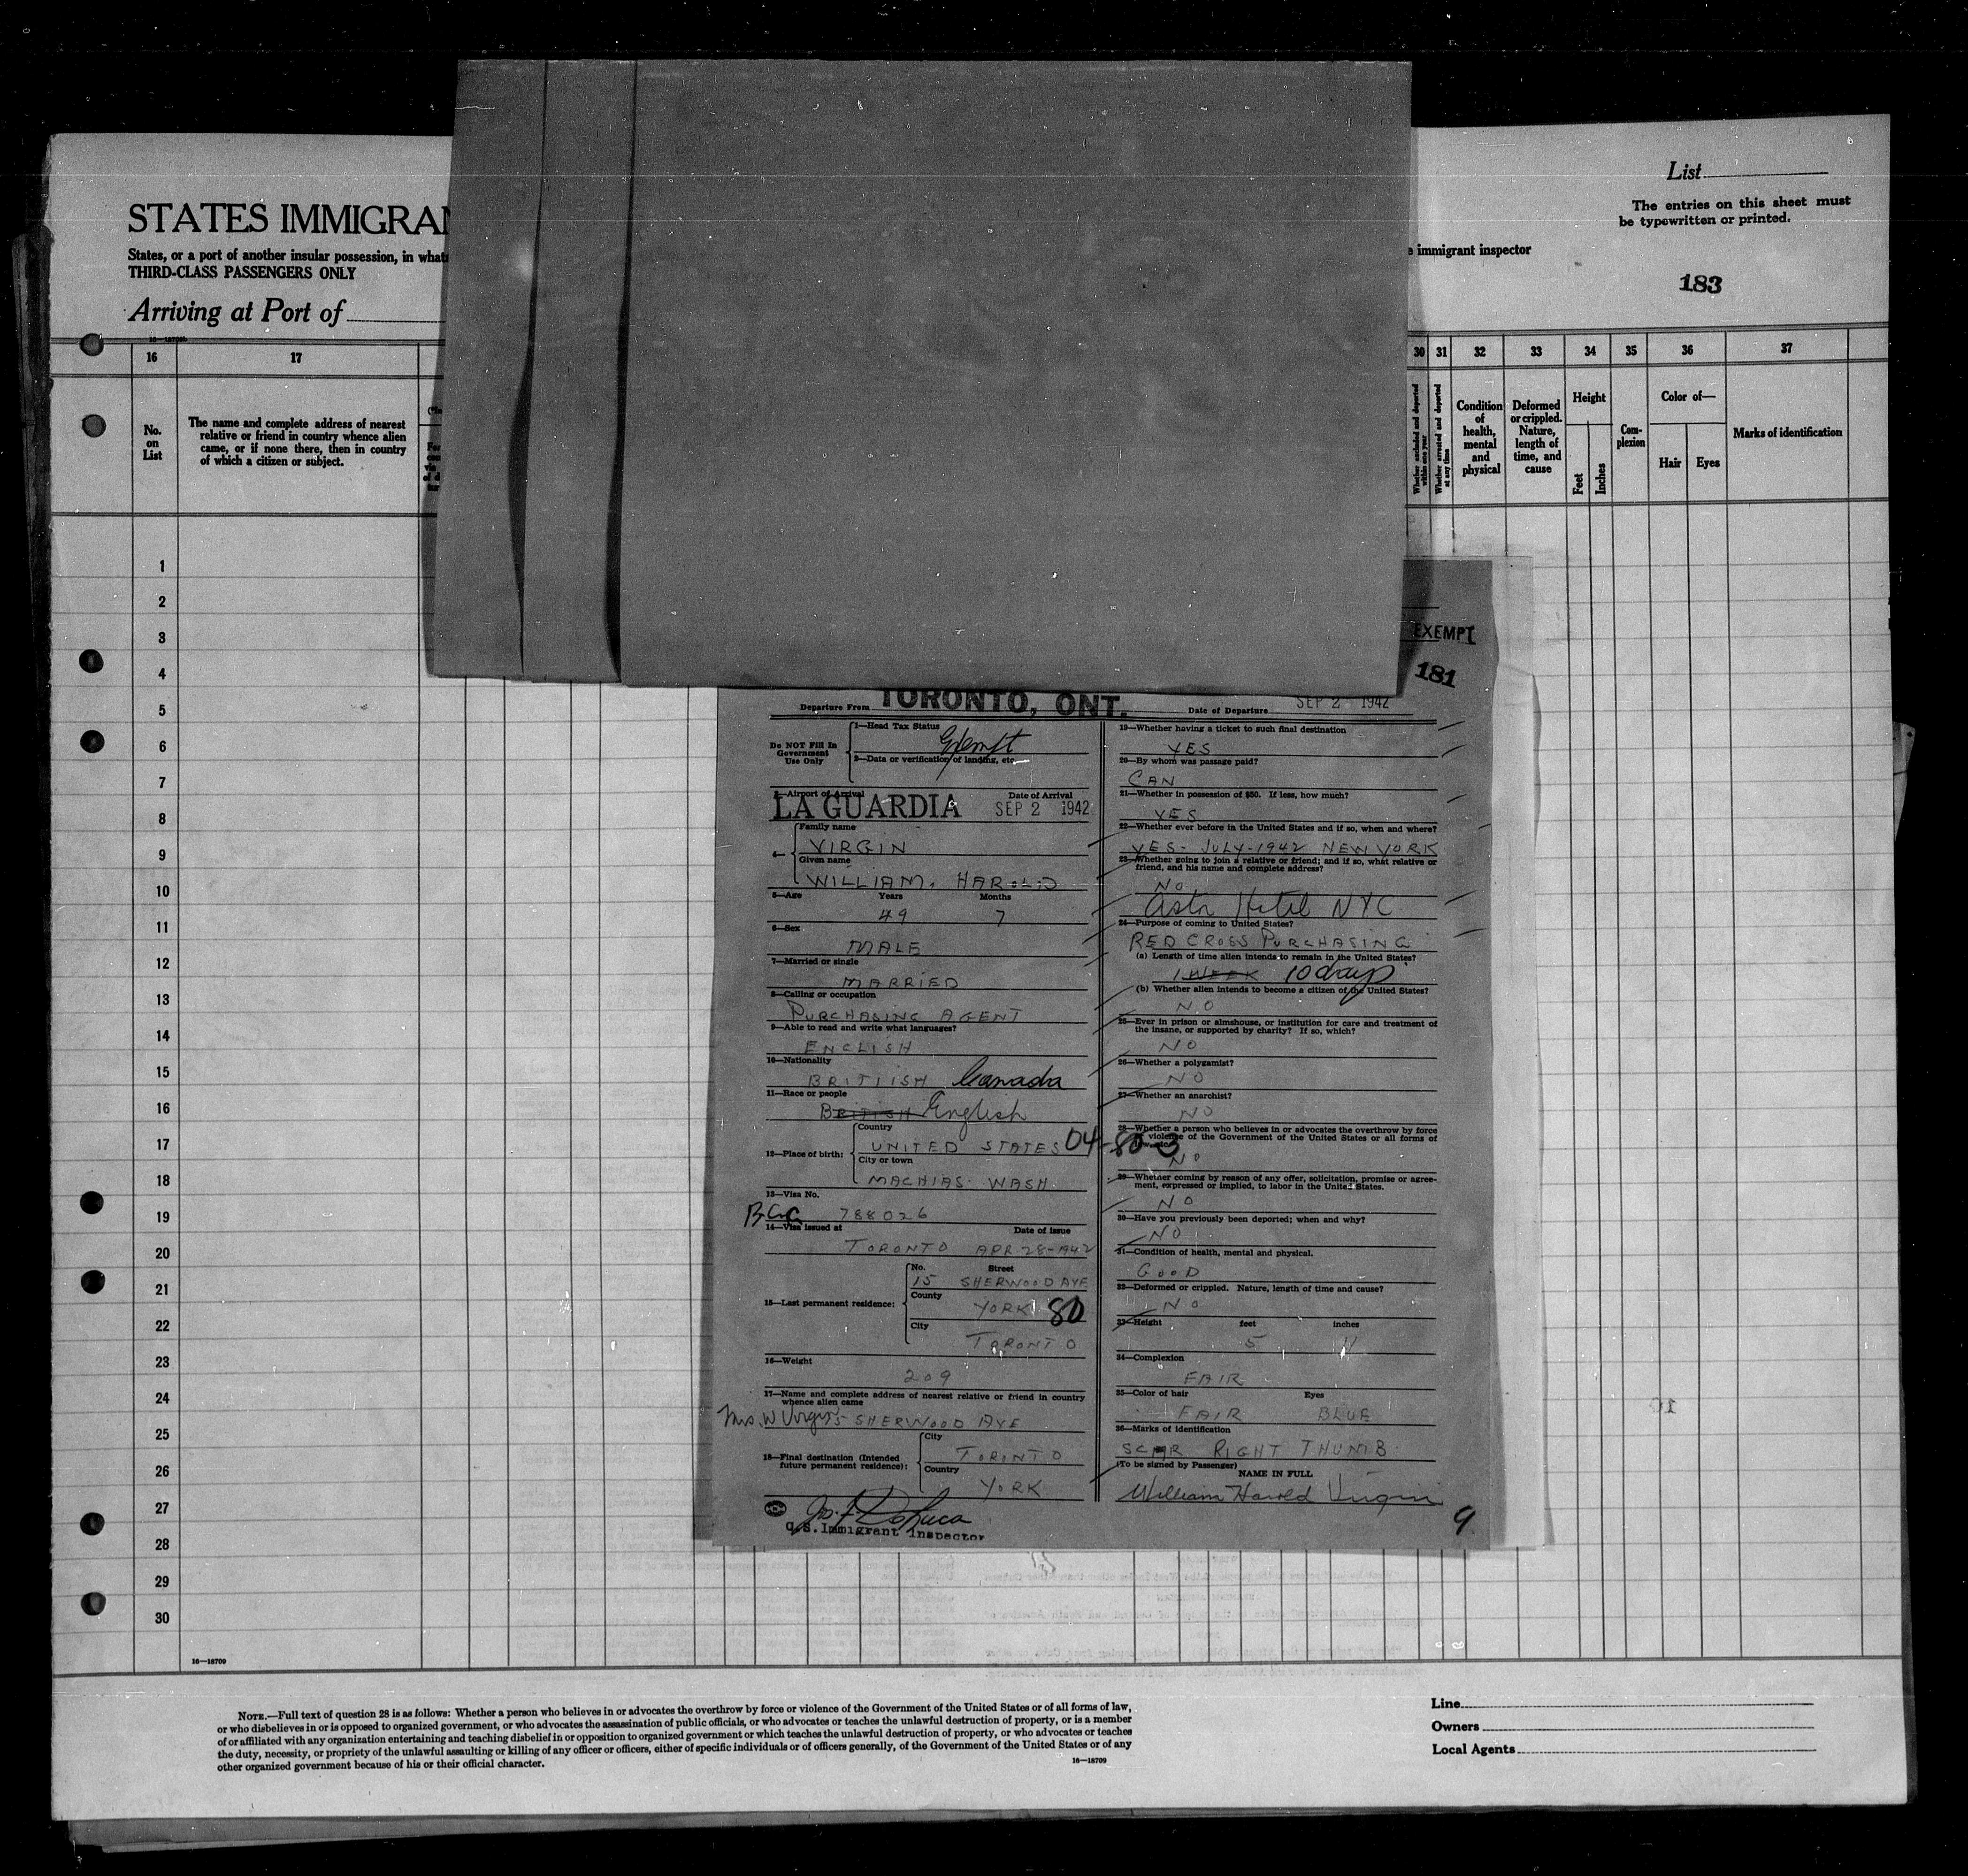 List
The entries on this sheet must
be typewritten or printed.
STATES IMMIGRAN
States, or a port of another insular possession, in what
THIRD-CLASS PASSENGERS ONLY
e immigrant inspector
183
Arriving at Port of
16 17 30 31 32 33 34 35 36 37
No.
on
List
The name and complete address of nearest
relative or friend in country whence alien
came, or if none there, then in country
of which a citizen or subject.
Whether excluded and deported
within one year
Whether arrested and deported
at any time
Condition
of
health,
mental
and
physical
Deformed
or crippled.
Nature,
length of
time, and
cause
Height
Feet
Inches
Com-
plexion
Color of—
Hair Eyes
Marks of identification
1
2
3
4
5
6
7
8
9
10
11
12
13
14
15
16
17
18
19
20
21
22
23
24
25
26
27
28
29
30
16—18709
EXEMPT
181
Departure From TORONTO, ONT. Date of Departure SEP 2 1942
Do NOT Fill In
Government
Use Only
1—Head Tax Status
Exempt
2—Data or verification of landing, etc.
3—Airport of Arrival Date of Arrival
LA GUARDIA SEP 2 1942
4—
Family name
VIRGIN
Given name
WILLIAM. HAROLD
5—Age Years Months
49 7
6—Sex
MALE
7—Married or single
MARRIED
8—Calling or occupation
PURCHASING AGENT
9—Able to read and write what languages?
ENGLISH
10—Nationality
BRITIISH Canada
11—Race or people
BRITISH English
12—Place of birth:
Country
UNITED STATES 04-80-3
City or town
MACHIAS. WASH.
13—Visa No.
788026
14—Visa issued at Date of issue
TORONTO APR 28-1942
15—Last permanent residence:
No. Street
15 SHERWOOD AVE
County
YORK 80
City
TORONTO
16—Weight
209
17—Name and complete address of nearest relative or friend in country
whence alien came
Mrs. W Virgin 15 SHERWOOD AVE
18—Final destination (Intended
future permanent residence):
City
TORONTO
Country
YORK
U.S. Immigrant Inspector
19—Whether having a ticket to such final destination
YES
20—By whom was passage paid?
CAN
21—Whether in possession of $50. If less, how much?
YES
22—Whether ever before in the United States and if so, when and where?
YES- JULY-1942 NEW YORK
23—Whether going to join a relative or friend; and if so, what relative or
friend, and his name and complete address?
NO
Astor Hotel NYC
24—Purpose of coming to United States?
RED CROSS PURCHASING
(a) Length of time alien intends to remain in the United States?
1 WEEK 10 days
(b) Whether alien intends to become a citizen of the United States?
NO
25—Ever in prison or almshouse, or institution for care and treatment of
the insane, or supported by charity? If so, which?
NO
26—Whether a polygamist?
NO
27—Whether an anarchist?
NO
28—Whether a person who believes in or advocates the overthrow by force
or violence of the Government of the United States or all forms of
NO
29—Whether coming by reason of any offer, solicitation, promise or agree-
ment, expressed or implied, to labor in the United States.
NO
30—Have you previously been deported; when and why?
NO
31—Condition of health, mental and physical.
GOOD
32—Deformed or crippled. Nature, length of time and cause?
NO
33—Height feet inches
5 11
34—Complexion
FAIR
35—Color of hair Eyes
FAIR BLUE
36—Marks of identification
SCAR RIGHT THUMB
(To be signed by Passenger)
NAME IN FULL
William Harold Virgin
9
NOTE.—Full text of question 28 is as follows: Whether a person who believes in or advocates the overthrow by force or violence of the Government of the United States or of all forms of law,
or who disbelieves in or is opposed to organized government, or who advocates the assassination of public officials, or who advocates or teaches the unlawful destruction of property, or is a member
of or affiliated with any organization entertaining and teaching disbelief in or opposition to organized government or which teaches the unlawful destruction of property, or who advocates or teaches
the duty, necessity, or propriety of the unlawful assaulting or killing of any officer or officers, either of specific individuals or of officers generally, of the Government of the United States or of any
other organized government because of his or their official character.
16—18709
Line
Owners
Local Agents